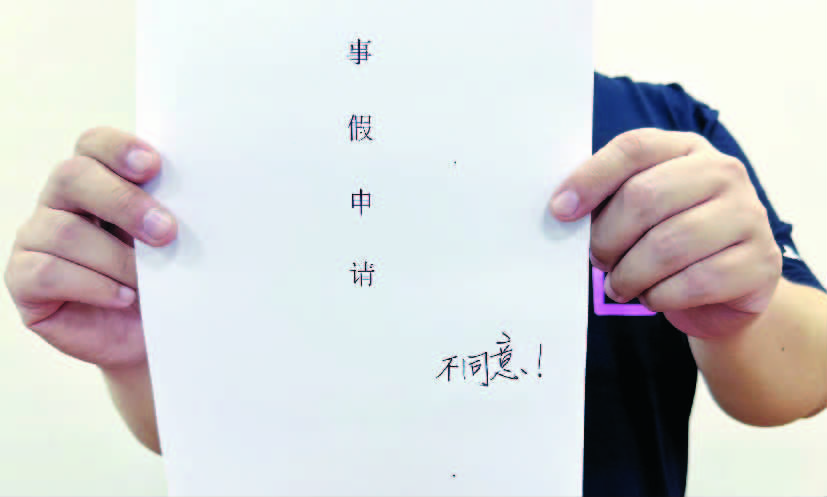 事假申请
不同意、！